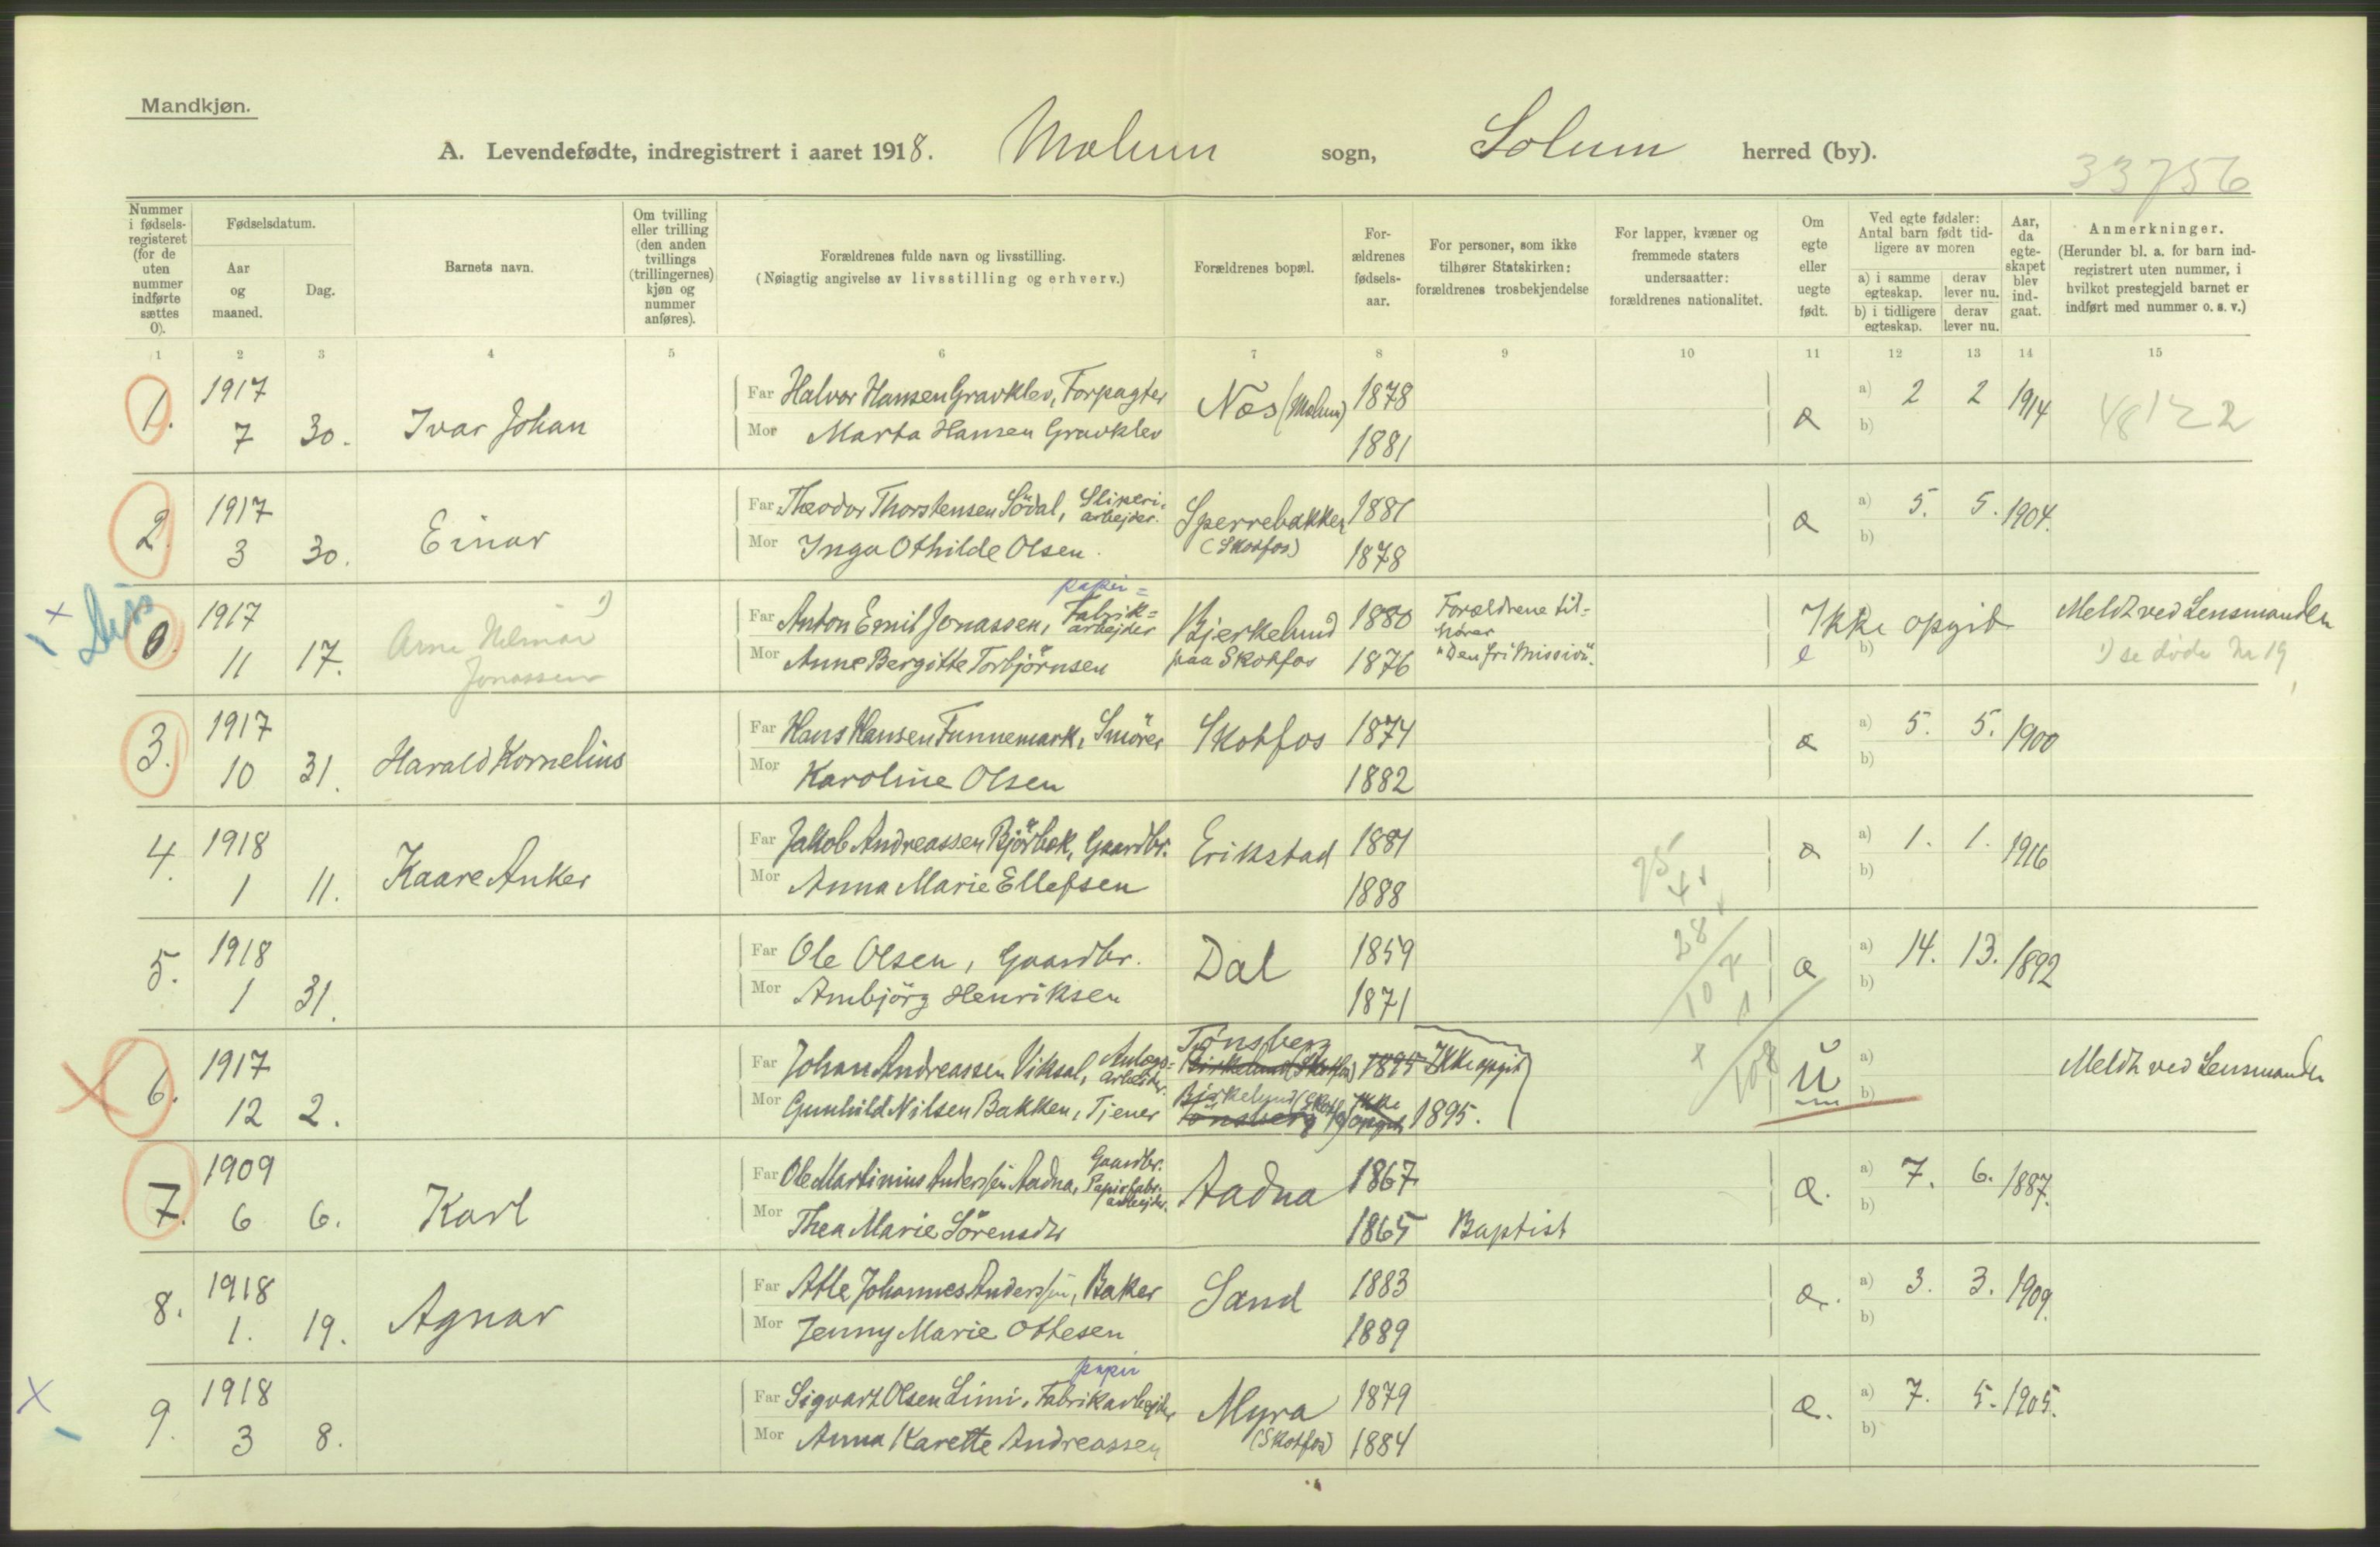 Mandkjøn.
A. Levendefødte, indregistrert i aaret 1918. Molum sogn, Solum herred (by).
33756
Nummer i fødsels-registeret (for de uten nummer indførte sættes 0).
Fødselsdatum.
Aar og maaned.
Dag.
Barnets navn.
Om tvilling eller trilling (den anden tvillings (trillingernes) kjøn og nummer anføres).
Forældrenes fulde navn og livsstilling.
(Nøiagtig angivelse av livsstilling og erhverv.)
Forældrenes bopæl.
For-ældrenes fødsels-aar.
For personer, som ikke tilhører Statskirken: forældrenes trosbekjendelse
For lapper, kvæner og fremmede staters undersaatter: forældrenes nationalitet.
Om egte eller uegte født.
Ved egte fødsler: Antal barn født tid-ligere av moren
a) i samme egteskap. derav lever nu.
b) i tidligere egteskap. derav lever nu.
Aar, da egte-skapet blev ind-gaat.
Anmerkninger.
(Herunder bl. a. for barn ind-registrert uten nummer, i hvilket prestegjeld barnet er indført med nummer o. s. v.)
1 2 3 4 5 6 7 8 9 10 11 12 13 14 15
1. 1917 7 30. Ivar Johan
Far Halvor Hansen Gravklev, Forpagter Næs (Molum) 1878 æ a) 2 2 1914
Mor Marta Hansen Gravklev 1881 b)
2. 1917 3 30. Einar
Far Theodor Thorstensen Södal, Sliperi-arbejder. Sperrebakken (Skotfos) 1881 æ a) 5. 5. 1904.
Mor Inga Othilde Olsen. 1878 b)
0. 1917 11 17. Arne Helmar Jonassen 1)
Far Anton Emil Jonassen, papir= Fabrik=arbejder Bjerkelund paa Skotfos 1880 Forældrene til-hører "Den fri Mission". Ikke opgit Meldt ved Lensmanden
Mor Anne Bergitte Torbjörnsen 1876 e b) 1) se døde Nr 19
3. 1917 10 31. Harald Kornelius
Far Hans Hansen Funnemark, Smörer Skotfos 1874 æ a) 5. 5. 1900
Mor Karoline Olsen 1882 b)
4. 1918 1 11. Kaare Anker
Far Jakob Andreassen Björbæk, Gaardbr. Erikstad 1881 æ a) 1. 1. 1916
Mor Anna Marie Ellefsen 1888 b)
5. 1918 1 31.
Far Ole Olsen, Gaardbr. Dal 1859 æ a) 14. 13. 1892
Mor Ambjörg Henriksen 1871 b)
6. 1917 12 2.
Far Johan Andreassen Viksal, Anlegs=arbeider. Tönsberg Birkelund (Skotfos) 1895 Ikke opgit U a) Meldt ved Lensmanden
Mor Gunhild Nilsen Bakken, Tjener Bjerkelund (Skotfos) Tönsberg Ikke opgit 1895. b)
7. 1909 6 6. Karl
Far Ole Martinius Anderssen Aadna, Gaardbr. Papirfabr. arbejder. Aadna 1867 æ. a) 7. 6. 1887.
Mor Thea Marie Sörensdtr 1865 Baptist b)
8. 1918 1. 19. Agnar
Far Atle Johannes Anderssen, Baker Sand 1883 æ. a) 3. 3. 1909.
Mor Jenny Marie Ottesen 1889 b)
9. 1918 3 8.
Far Sigvart Olsen Limi, papir Fabrikarbejder Myra (Skotfos) 1879 æ. a) 7. 5. 1905.
Mor Anna Karette Andreassen 1884 b)